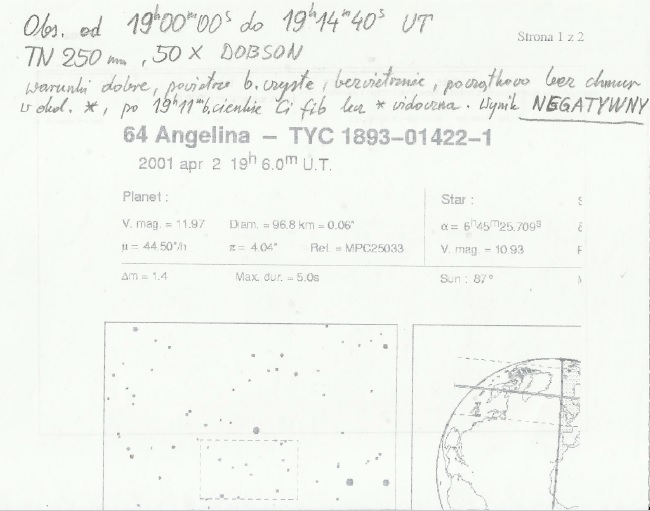 Obs. od 19ʰ00ᵐ00ˢ do 19ʰ14ᵐ40ˢ UT
Strona 1 z 2
TN 250 mm, 50 X DOBSON
warunki dobre, powietrze b. czyste, bezwietrznie, początkowo bez chmur
w okol. *, po 19ʰ11ᵐ b. cienkie Ci fib lecz * widoczna. Wynik NEGATYWNY
64 Angelina – TYC 1893-01422-1
2001 apr 2 19ʰ 6.0ᵐ U.T.
Planet :
Star :
V. mag. = 11.97 Diam. = 96.8 km = 0.06"
α = 6ʰ45ᵐ25.709ˢ
μ = 44.50"/h π = 4.04" Ref. = MPC25033
V. mag. = 10.93
Δm = 1.4 Max. dur. = 5.0s
Sun : 87°